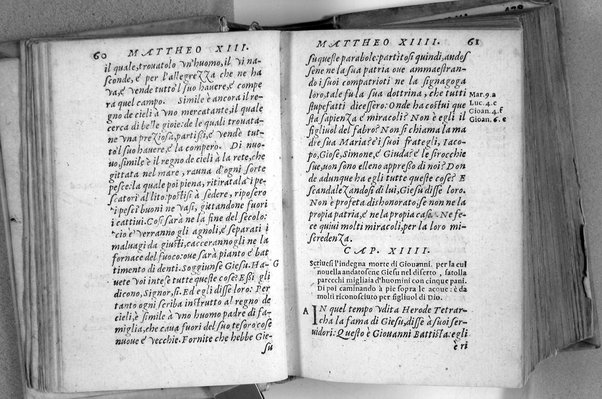 60 MATTHEO XIII.
il quale, trouatolo vn'huomo, il vi na-
sconde, & per l'allegrezza che ne ha
va, & vende tutto'l suo hauere, & compe
ra quel campo. Simile è ancora il regno
de cieli à vno mercatante, il quale
cerca di belle gioie: de le quali trouata-
ne vna preziosa, partissi, & vende tut-
to'l suo hauere, & la compero. Di nuo-
uo, simile è il regno de cieli à la rete, che
gittata nel mare, rauna d'ogni sorte
pesce: la quale poi piena, ritiratala i pe-
scatori al lito: postisi à sedere, riposero
i pesci buoni ne vasi, gittandone fuori
i cattiui. Cosi sarà ne la fine del secolo:
cio è verranno gli agnoli, & separati i
maluagi da giusti, caccerannogli ne la
fornace del fuoco: oue sarà pianto & ba
timento di denti. Soggiunse Giesu. Ha-
uete voi inteso tutte queste cose? Essi gli
dicono, Signor, si. Ed egli disse loro. Per
tanto ogni scriba instrutto al regno de
cieli, è simile à vno huomo padre di fa-
miglia, che caua fuori del suo tesoro cose
nuoue & vecchie. Fornite che hebbe Gie-
su
G
MATTHEO XIIII. 61
su queste parabole: partitosi quindi, andos
sene ne la sua patria oue ammaestran-
do i suoi compatrioti ne la sinagoga
loro, tale fu la sua dottrina, che tutti
stupefatti dicessero: Onde ha costui que
sta sapienza & miracoli? Non è egli il
figliuol del fabro? Non si chiama la ma
die sua Maria? & i suoi frategli, Iaco-
po, Giose, Simone, & Giuda? & le sirocchie
sue, non sono elleno appresso di noi? Don
de adunque ha egli tutte queste cose? E
scandalezandosi di lui, Giesu disse loro.
Non è profeta dishonorato: se non ne la
propria patria, & ne la propria casa. Ne fe-
ce quiui molti miracoli, per la loro mi-
scredenza.
Mar. 9. a
Luc. 4. c
Gioan. 4. f
Gioan. 6. e
CAP. XIIII.
Scriuesi l'indegna morte di Giouanni. per la cui
nouella andatosene Giesu nel diserto, satolla
parecchi migliaia d'huomini con cinque pani.
Di poi caminando à piè sopra le acque: è da
molti riconosciuto per figliuol di Dio.
A IN quel tempo vdita Herode Tetrar-
cha la fama di Giesu, disse à suoi ser-
uidori: Questo è Giouanni Battista: egli
è ri